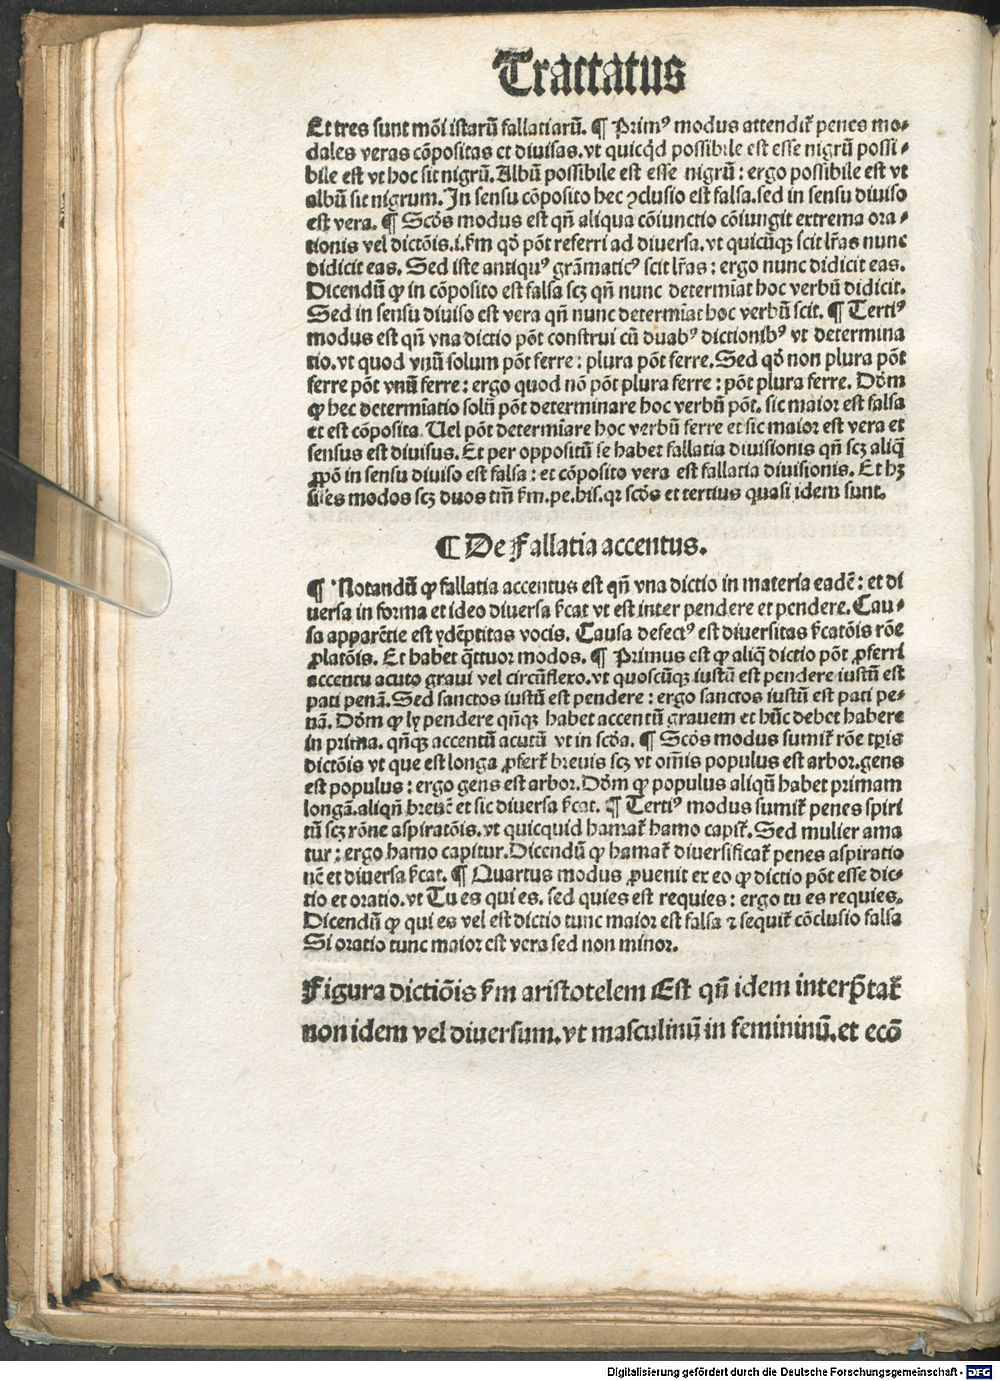 Tractatus
Et tres sunt mōi istarū fallatiarū. ¶ Primꝰ modus attendit᷑ penes mo⸗
dales veras cōpositas et diuisas. vt quicqd̄ possibile est esse nigrū possi⸗
bile est vt hoc sit nigrū. Albū possibile est esse nigrū : ergo possibile est vt
albū sit nigrum. In sensu cōposito hec ↄclusio est falsa. sed in sensu diuiso
est vera. ¶ Scōs modus est qn̄ aliqua cōiunctio cōiungit extrema ora⸗
tionis vel dictōis .i. ẜm qō pōt referri ad diuersa. vt quicūqꝫ scit lr̄as nunc
didicit eas. Sed iste antiquꝰ grāmaticꝰ scit lr̄as : ergo nunc didicit eas.
Dicendū ꝙ in cōposito est falsa scꝫ qn̄ nunc determīat hoc verbū didicit.
Sed in sensu diuiso est vera qn̄ nunc determīat hoc verbū scit. ¶ Tertiꝰ
modus est qn̄ vna dictio pōt construi cū duabꝰ dictionibꝰ vt determina
tio. vt quod vnū solum pōt ferre : plura pōt ferre. Sed qō non plura pōt
ferre pōt vnū ferre : ergo quod nō pōt plura ferre : pōt plura ferre. Dōm
ꝙ hec determīatio solū pōt determinare hoc verbū pōt. sic maior est falsa
et est cōposita. Uel pōt determīare hoc verbū ferre et sic maior est vera et
sensus est diuisus. Et per oppositū se habet fallatia diuisionis qn̄ scꝫ aliq̄
ꝓpō in sensu diuiso est falsa : et cōposito vera est fallatia diuisionis. Et hꝫ
sil̄es modos scꝫ duos tm̄ ẜm .pe. his. qꝛ scōs et tertius quasi idem sunt.
¶ De Fallatia accentus.
¶ Notandū ꝙ fallatia accentus est qn̄ vna dictio in materia eadē : et di
uersa in forma et ideo diuersa ẜcat vt est inter pendere et pendere. Cau⸗
sa apparētie est ydēptitas vocis. Causa defectꝰ est diuersitas ẜcatōis rōe
ꝓlatōis. Et habet q̄ttuor modos. ¶ Primus est ꝙ aliq̄ dictio pōt ꝓferri
accentu acuto graui vel circūflexo. vt quoscūqꝫ iustū est pendere iustū est
pati penā. Sed sanctos iustū est pendere : ergo sanctos iustū est pati pe⸗
nā. Dōm ꝙ ly pendere qn̄qꝫ habet accentū grauem et hūc debet habere
in prima. qn̄qꝫ accentū acutū vt in scōa. ¶ Scōs modus sumit᷑ rōe tp̄is
dictōis vt que est longa ꝓfert᷑ breuis scꝫ vt om̄is populus est arbor. gens
est populus : ergo gens est arbor. Dōm ꝙ populus aliqn̄ habet primam
longā. aliqn̄ breuē et sic diuersa ẜcat. ¶ Tertiꝰ modus sumit᷑ penes spiri
tū scꝫ rōne aspiratōis. vt quicquid hamat᷑ hamo capit᷑. Sed mulier ama
tur : ergo hamo capitur. Dicendū ꝙ hamat᷑ diuersificat᷑ penes aspiratio
nē et diuersa ẜcat. ¶ Quartus modus ꝓuenit ex eo ꝙ dictio pōt esse dic⸗
tio et oratio. vt Tu es qui es. sed quies est requies : ergo tu es requies.
Dicendū ꝙ qui es vel est dictio tunc maior est falsa ⁊ sequit᷑ cōclusio falsa
Si oratio tunc maior est vera sed non minor.
Figura dictiōis ẜm aristotelem Est qn̄ idem interp̄tat᷑
non idem vel diuersum. vt masculinū in femininū. et ecō
Digitalisierung gefördert durch die Deutsche Forschungsgemeinschaft - DFG